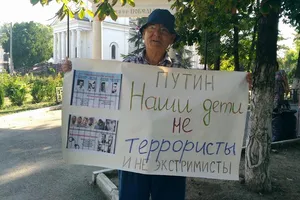 ПУТИН
Наши дети
не
террористы
И НЕ ЭКСТРИМИСТЫ